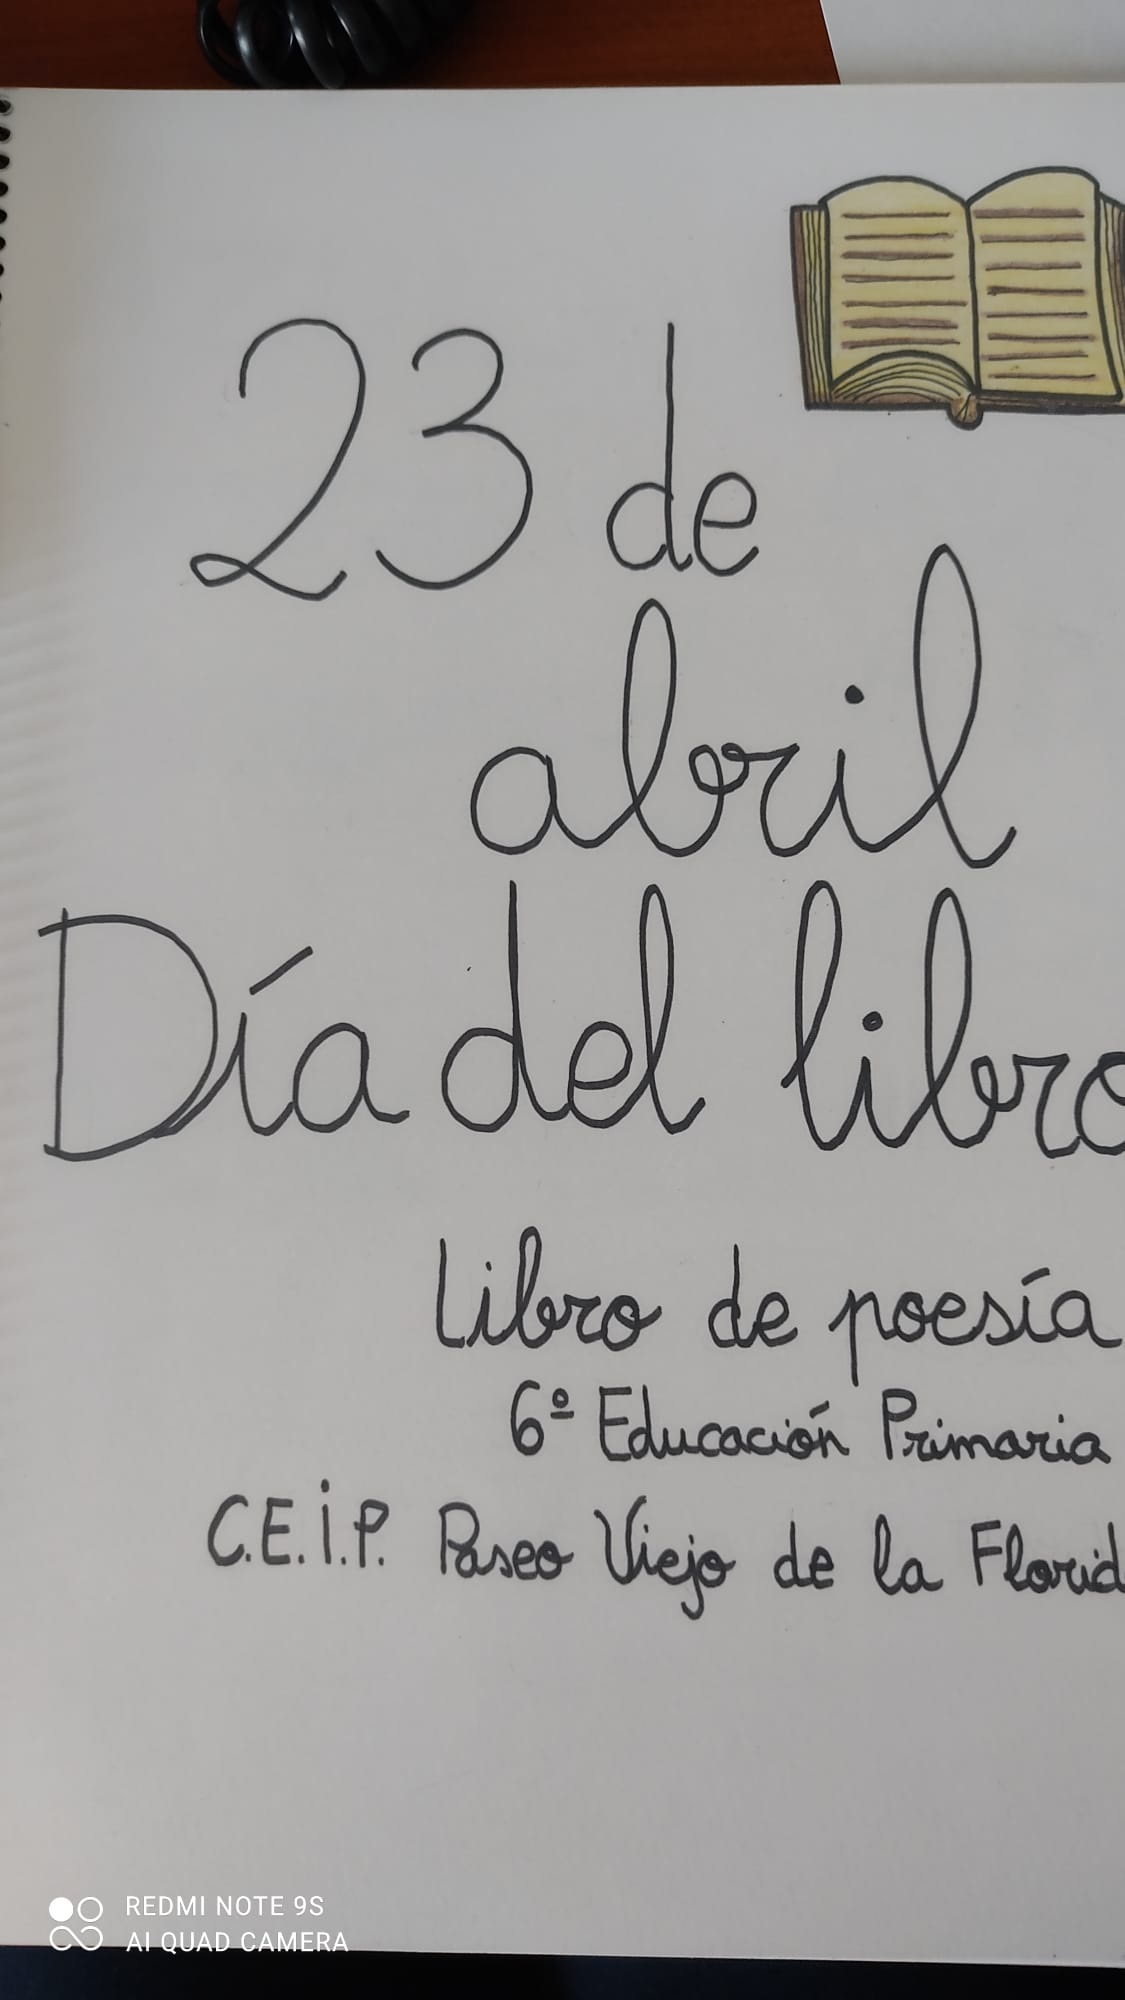 23 de
abril
Día del libro
Libro de poesía
6º Educación Primaria
C.E.I.P. Paseo Viejo de la Florid
REDMI NOTE 9S
AI QUAD CAMERA